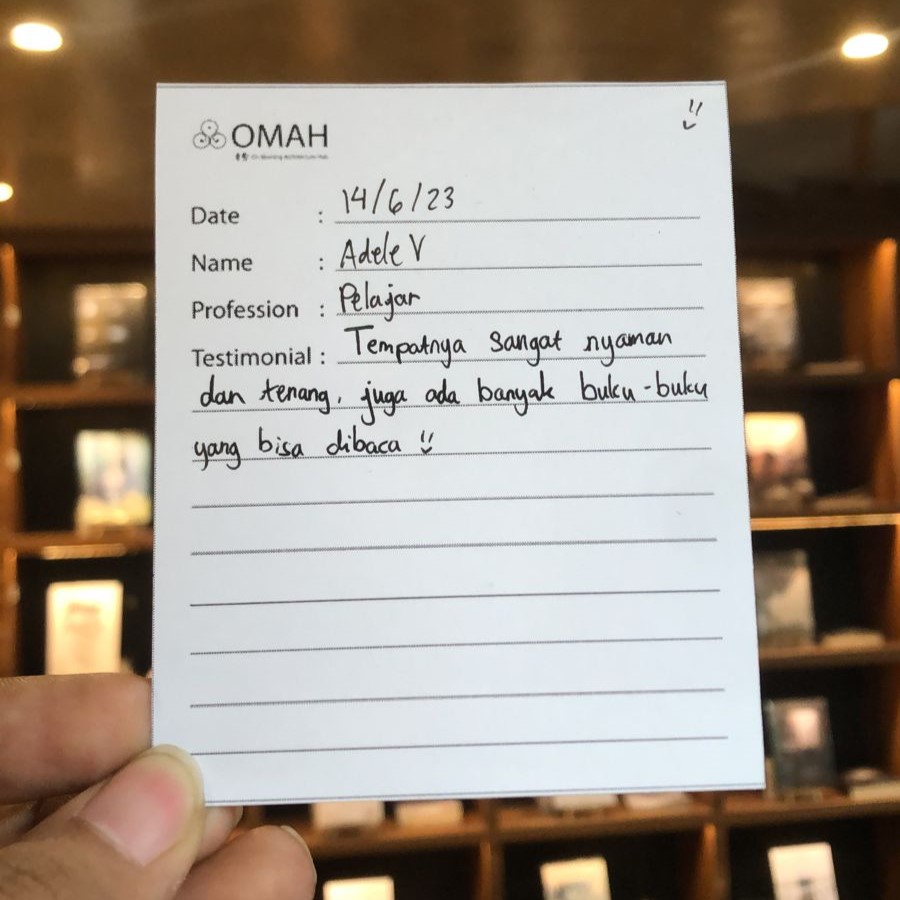 OMAH
Date : 14/6/23
Name : Adele V
Profession : Pelajar
Testimonial : Tempatnya sangat nyaman
dan tenang, juga ada banyak buku-buku
yang bisa dibaca